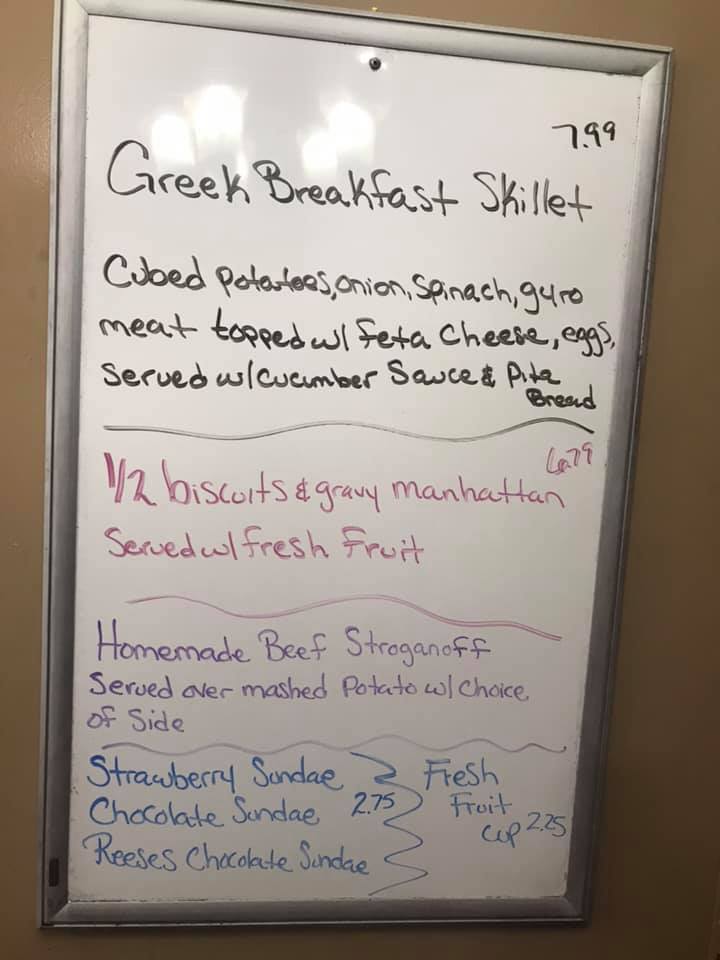 7.99
Greek Breakfast Skillet
Cubed potatoes, onion, spinach, gyro
meat topped w/ feta cheese, eggs,
Served w/cucumber Sauce & Pita
Bread
6.79
1/2 biscuits & gravy manhattan
Served w/ fresh Fruit
Homemade Beef Stroganoff
Served over mashed Potato w/ Choice
of Side
Strawberry Sundae
Chocolate Sundae 2.75
Reeses Chocolate Sundae
Fresh
Fruit
cup 2.25